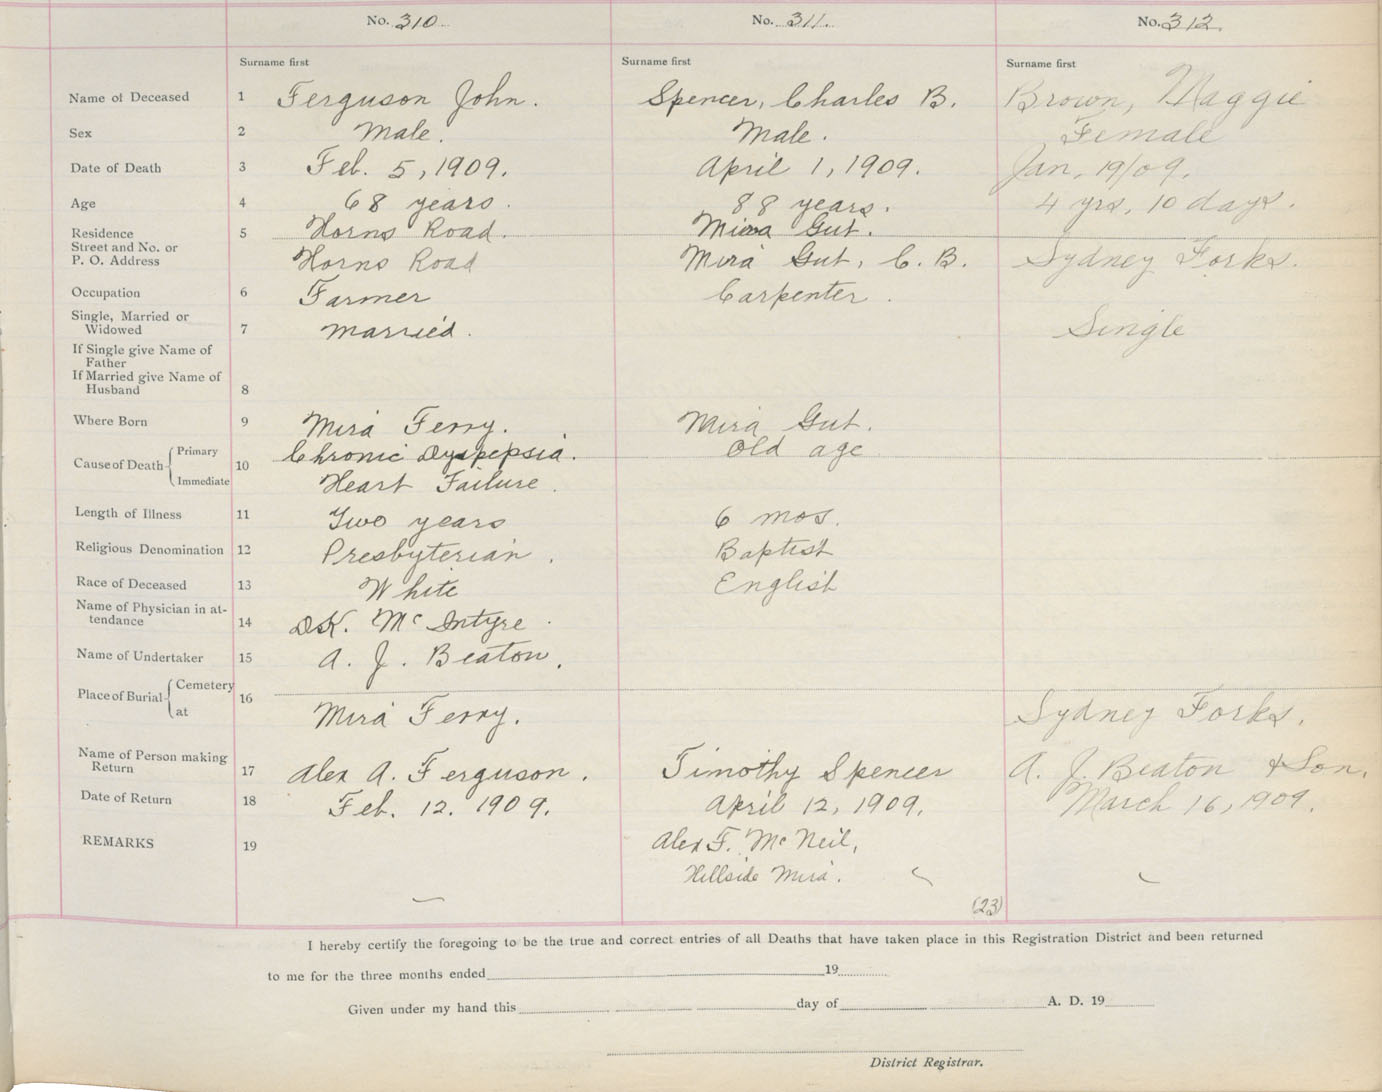 No. 310 No. 311. No. 312.
Surname first Surname first Surname first
Name of Deceased 1 Ferguson John. Spencer, Charles B. Brown, Maggie
Sex 2 Male. Male. Female
Date of Death 3 Feb. 5, 1909. April 1, 1909. Jan. 19/09.
Age 4 68 years. 88 years. 4 yrs, 10 days.
Residence 5 Horns Road. Mira Gut.
Street and No. or
P. O. Address Horns Road Mira Gut, C. B. Sydney Forks.
Occupation 6 Farmer Carpenter.
Single, Married or
Widowed 7 Married. Single
If Single give Name of
Father
If Married give Name of
Husband 8
Where Born 9 Mira Ferry. Mira Gut.
Cause of Death Primary 10 Chronic Dyspepsia. Old age
Immediate Heart Failure.
Length of Illness 11 Two years 6 mos.
Religious Denomination 12 Presbyterian. Baptist
Race of Deceased 13 White English
Name of Physician in at-
tendance 14 D.K. McIntyre.
Name of Undertaker 15 A. J. Beaton.
Place of Burial Cemetery 16
at Mira Ferry. Sydney Forks.
Name of Person making
Return 17 Alex A. Ferguson. Timothy Spencer A. J. Beaton & Son.
Date of Return 18 Feb. 12. 1909. April 12, 1909. March 16, 1909.
REMARKS 19 Alex F. McNeil,
Hillside Mira.
(23)
I hereby certify the foregoing to be the true and correct entries of all Deaths that have taken place in this Registration District and been returned
to me for the three months ended 19
Given under my hand this day of A. D. 19
District Registrar.